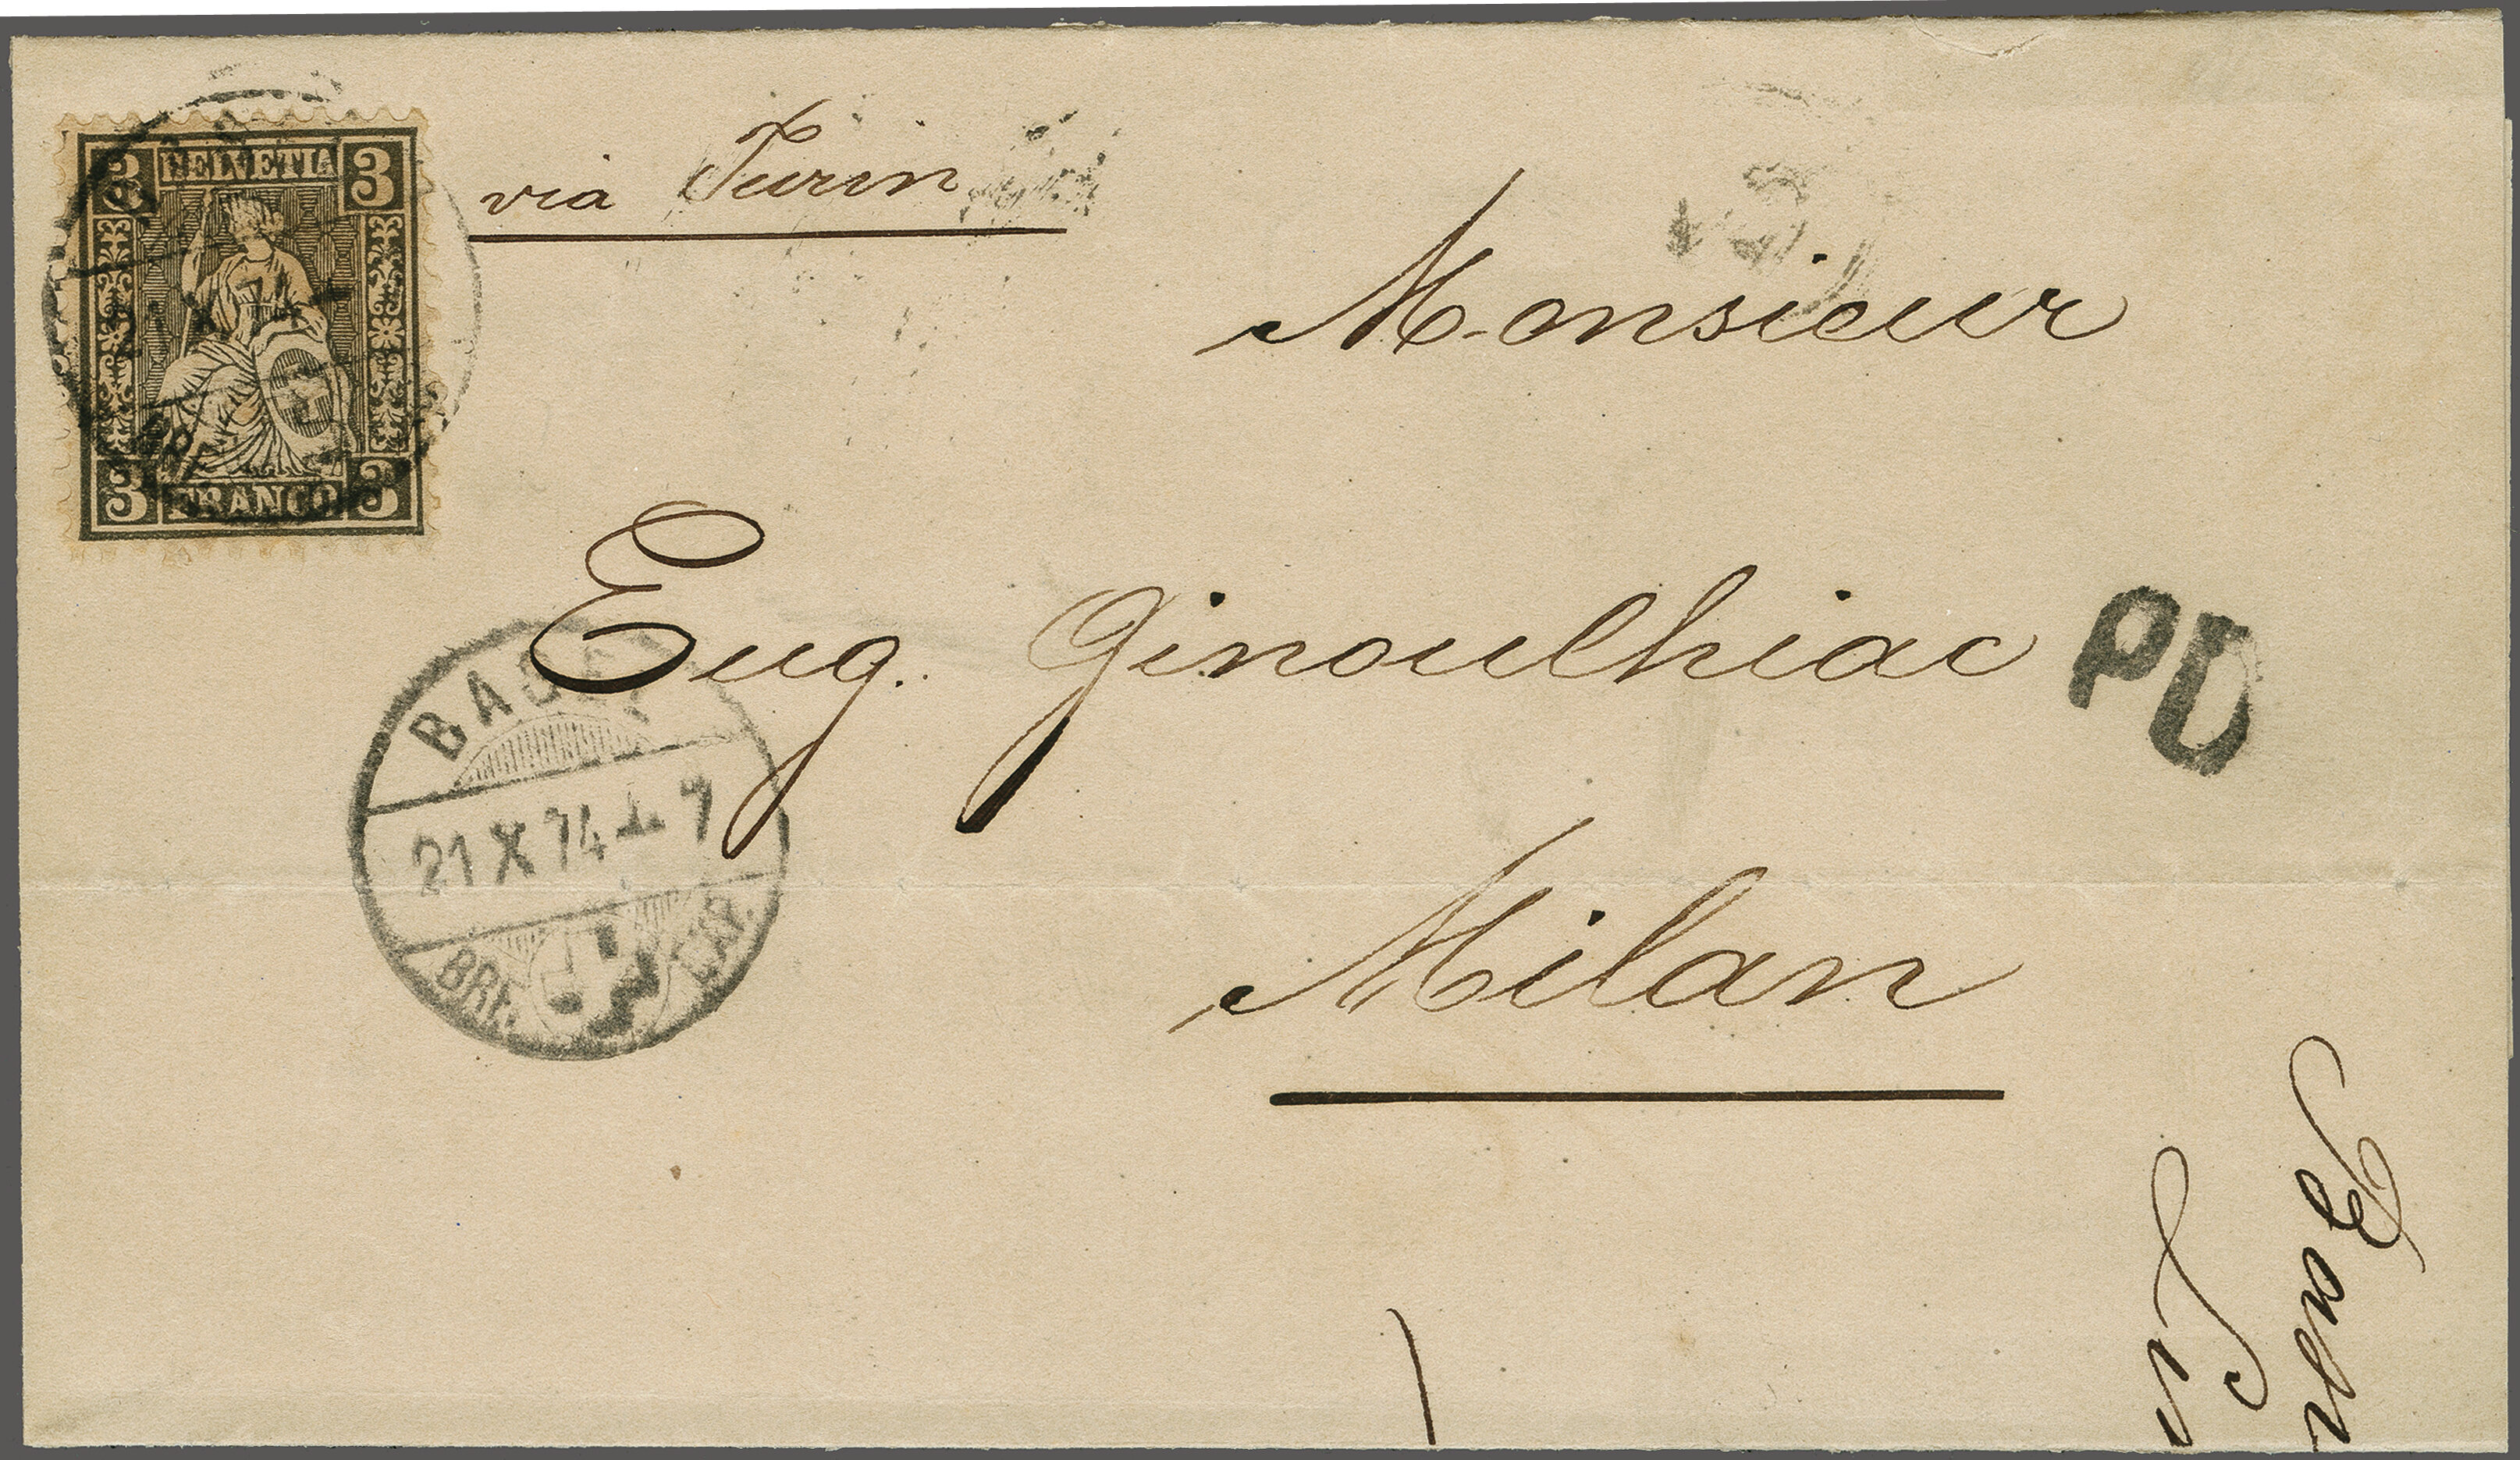 3 HELVETIA 3
3 FRANCO 3
via Turin
Monsieur
Eug. Ginoulhiac
PD
Milan
BASEL
21 X 74 - 7
BRF.